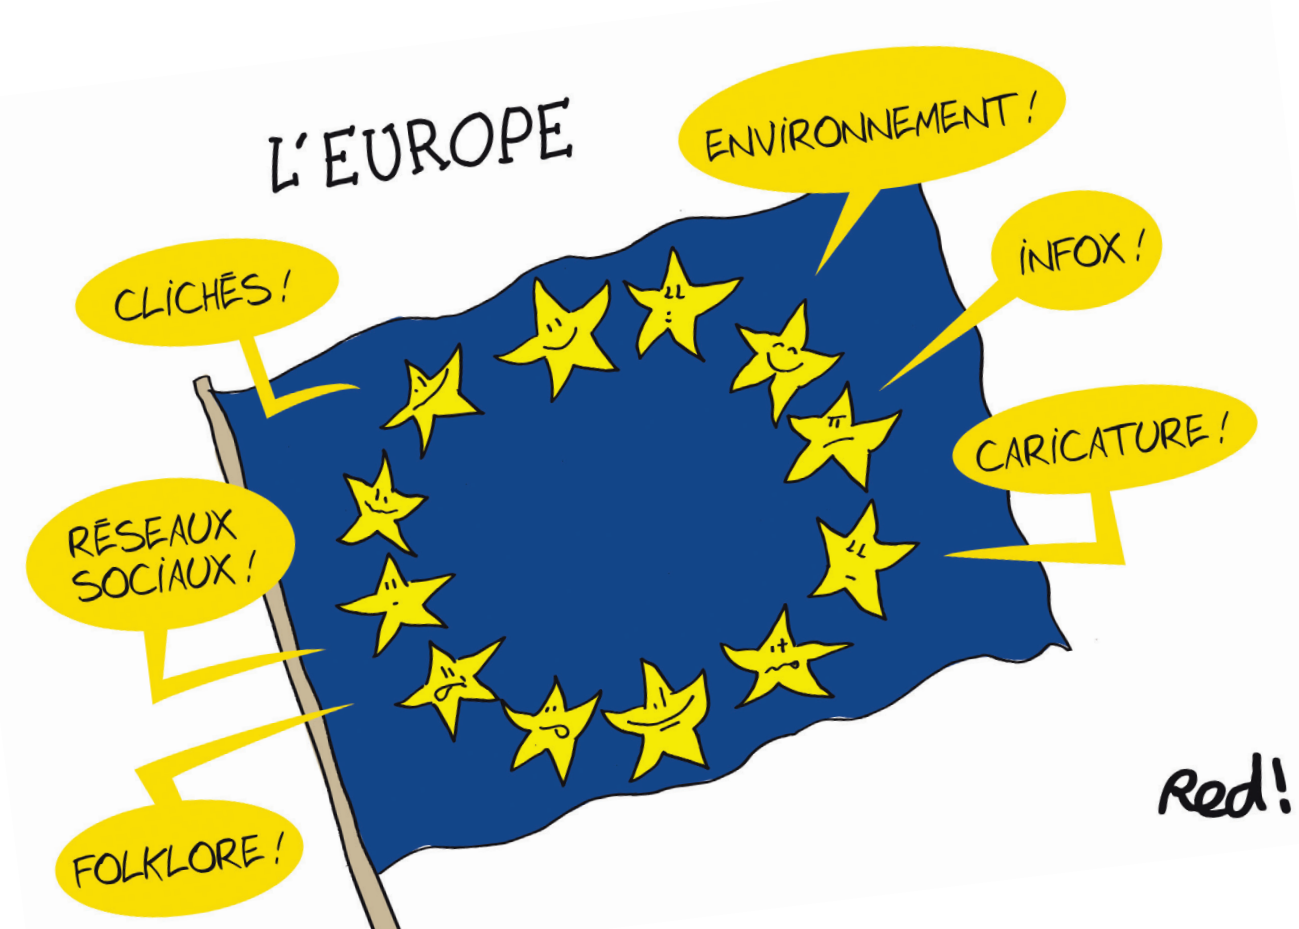 L'EUROPE
ENVIRONNEMENT !
INFOX !
CLICHÉS !
CARICATURE !
RÉSEAUX
SOCIAUX !
FOLKLORE !
Red!